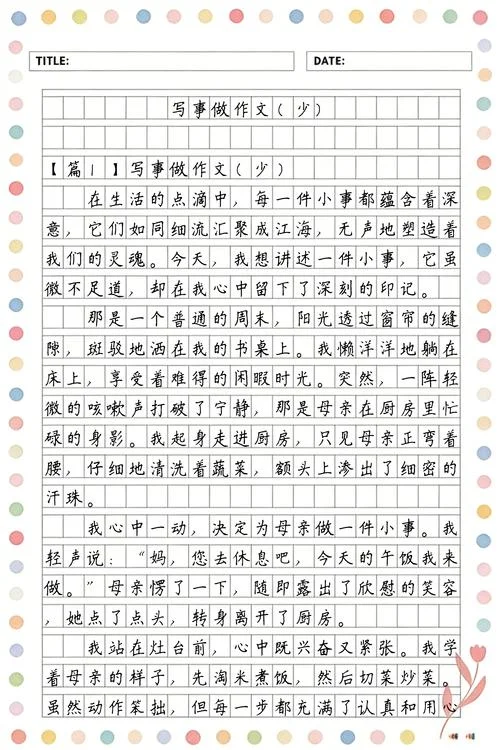 TITLE:
DATE:
写事做作文(少)
【篇1】写事做作文(少)
在生活的点滴中，每一件小事都蕴含着深
意，它们如同细流汇聚成江海，无声地塑造着
我们的灵魂。今天，我想讲述一件小事，它虽
微不足道，却在我心中留下了深刻的印记。
那是一个普通的周末，阳光透过窗帘的缝
隙，斑驳地洒在我的书桌上。我懒洋洋地躺在
床上，享受着难得的闲暇时光。突然，一阵轻
微的咳嗽声打破了宁静，那是母亲在厨房里忙
碌的身影。我起身走进厨房，只见母亲正弯着
腰，仔细地清洗着蔬菜，额头上渗出了细密的
汗珠。
我心中一动，决定为母亲做一件小事。我
轻声说：“妈，您去休息吧，今天的午饭我来
做。”母亲愣了一下，随即露出了欣慰的笑容
，她点了点头，转身离开了厨房。
我站在灶台前，心中既兴奋又紧张。我学
着母亲的样子，先淘米煮饭，然后切菜炒菜。
虽然动作笨拙，但每一步都充满了认真和用心